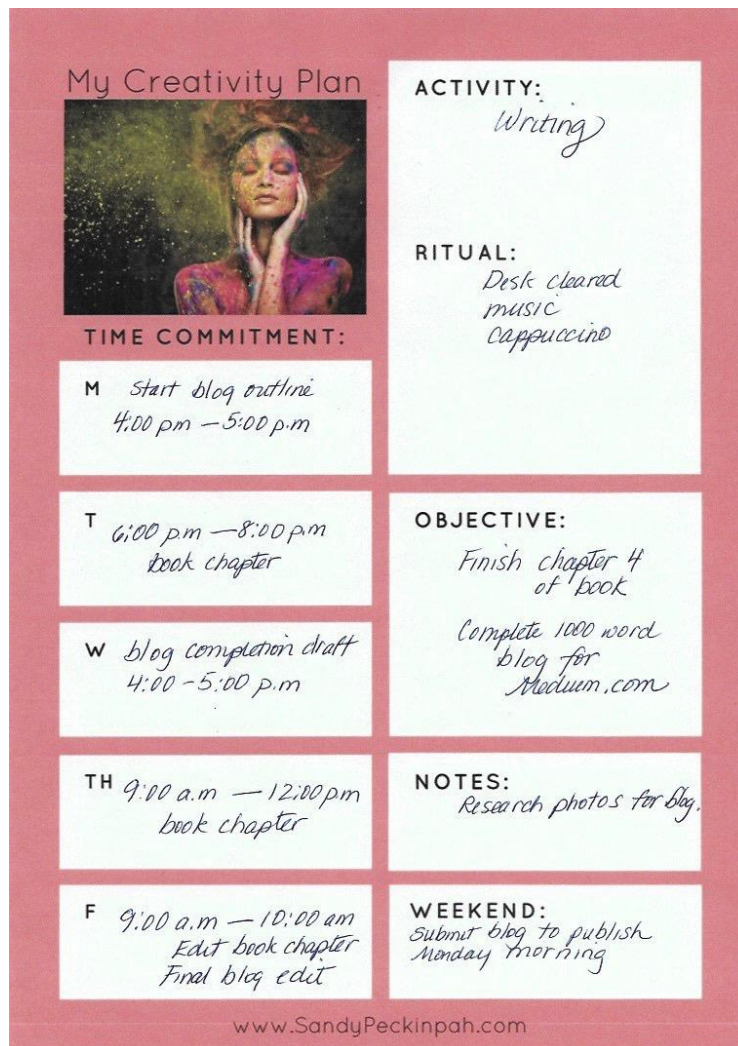 My Creativity Plan
TIME COMMITMENT:
M Start blog outline
4:00 pm — 5:00 p.m
T 6:00 p.m — 8:00 p.m
book chapter
W blog completion draft
4:00 - 5:00 p.m
TH 9:00 a.m — 12:00 pm
book chapter
F 9:00 a.m — 10:00 am
Edit book chapter
Final blog edit
ACTIVITY:
Writing
RITUAL:
Desk cleared
music
Cappuccino
OBJECTIVE:
Finish chapter 4
of book
Complete 1000 word
blog for
Medium.com
NOTES:
Research photos for blog.
WEEKEND:
Submit blog to publish
Monday morning
www.SandyPeckinpah.com